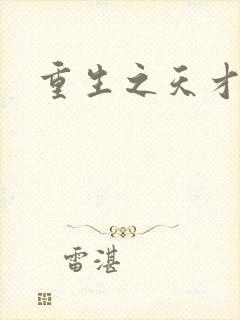 重生之天才
雷湛